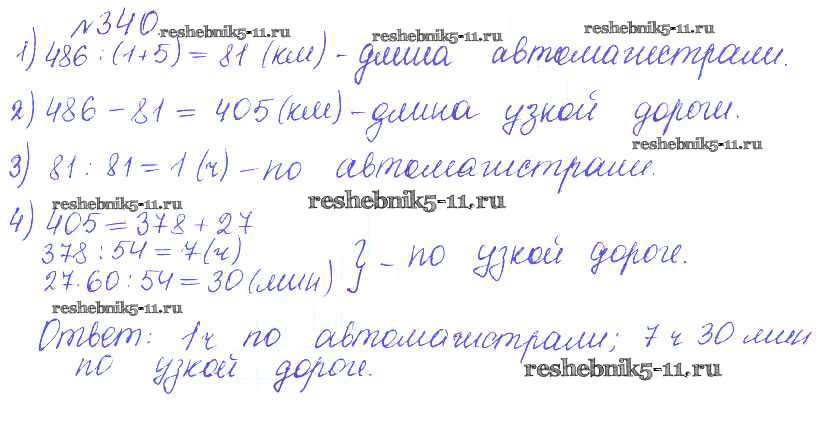 №340. reshebnik5-11.ru reshebnik5-11.ru reshebnik5-11.ru
1) 486 : (1+5) = 81 (км) - длина автомагистрали.
2) 486 - 81 = 405 (км) - длина узкой дороги.
reshebnik5-11.ru
3) 81 : 81 = 1 (ч) - по автомагистрали.
reshebnik5-11.ru reshebnik5-11.ru
4) 405 = 378 + 27
378 : 54 = 7 (ч)
27·60 : 54 = 30 (мин) } - по узкой дороге.
reshebnik5-11.ru
Ответ: 1 ч по автомагистрали; 7 ч 30 мин
по узкой дороге. reshebnik5-11.ru